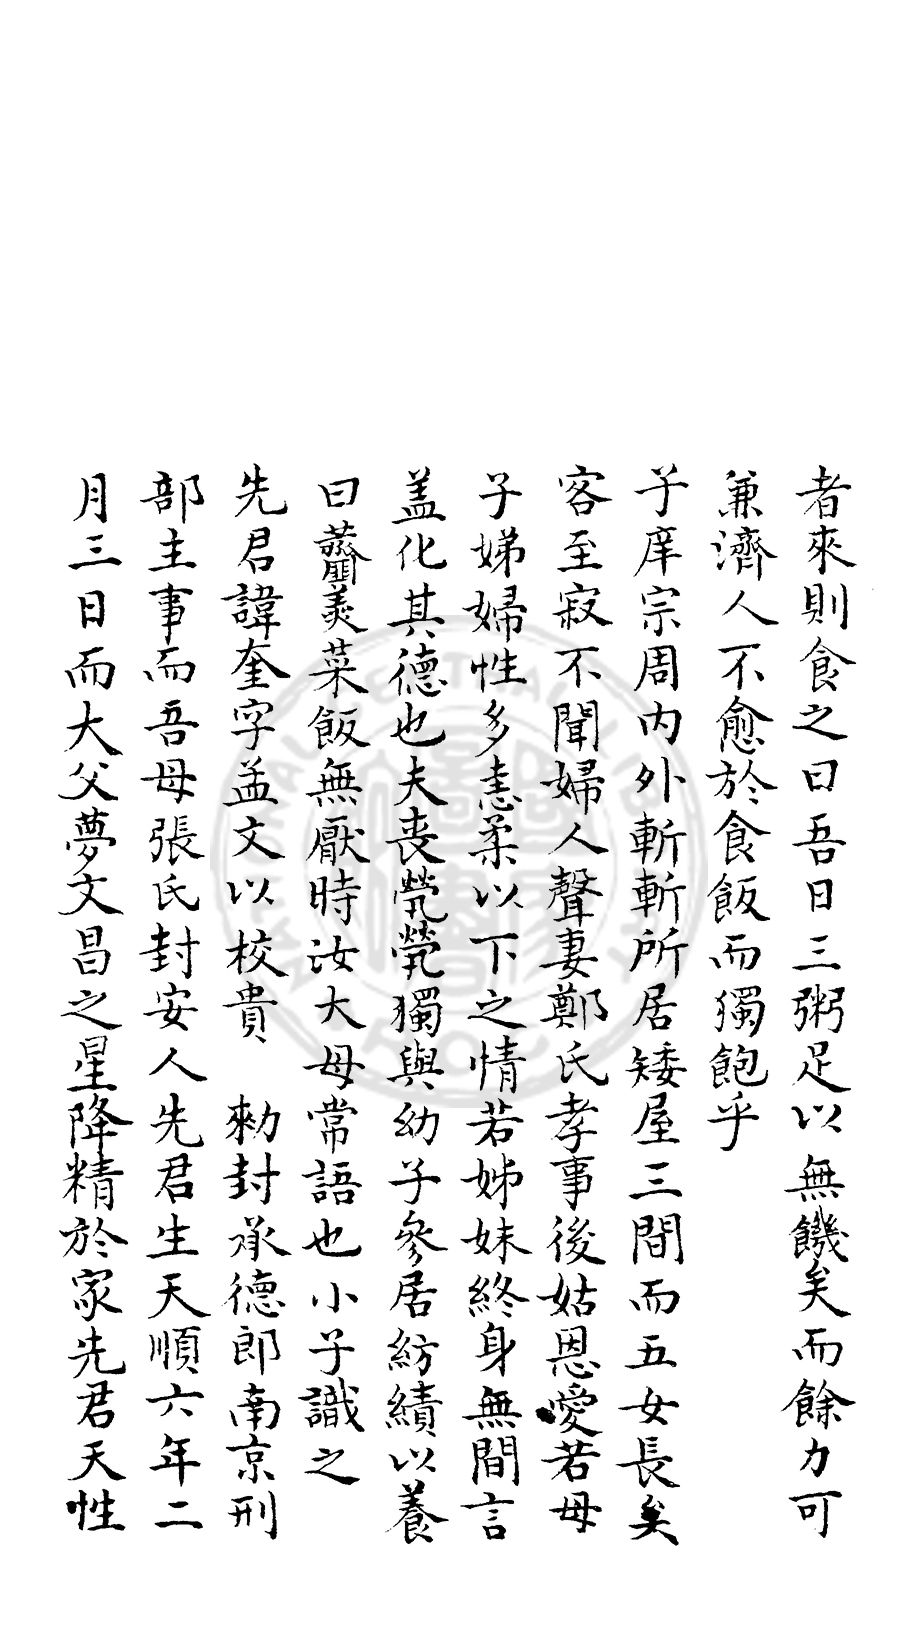 者來則食之曰吾日三粥足以無饑矣而餘力可
兼濟人不愈於食飯而獨飽乎
子庠宗周内外斬斬所居矮屋三間而五女長矣
客至寂不聞婦人聲妻鄭氏孝事後姑恩愛若母
子娣婦性多恚柔以下之情若姊妹終身無間言
盖化其德也夫丧煢煢獨與幼子參居紡績以養
曰虀羹菜飯無厭時汝大母常語也小子識之
先君諱奎字孟文以校貴 勑封承德郎南京刑
部主事而吾母張氏封安人先君生天順六年二
月三日而大父夢文昌之星降精於家先君天性